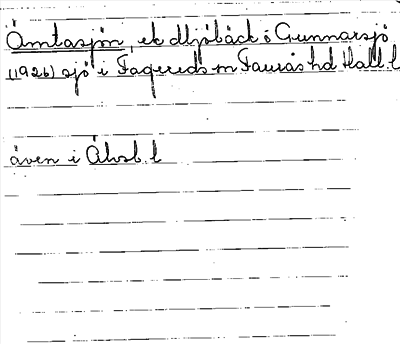 Åmtasjön, ek dljöbäck o Gunnarsjö
(1926) sjö i Fagereds sn Faurås hd Hall. l
även i Älvsb. l